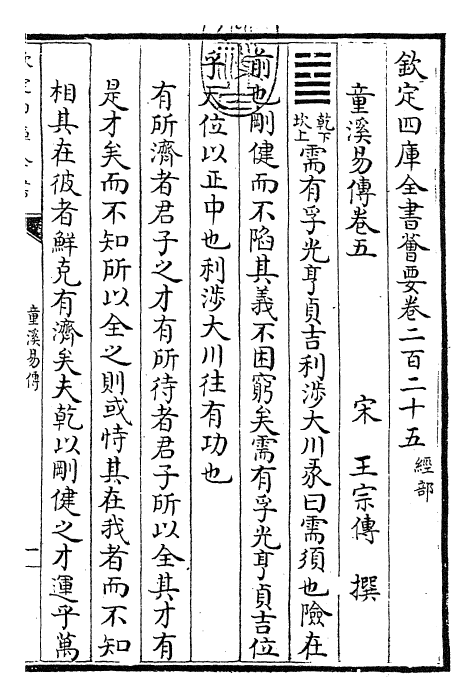 欽定四庫全書薈要卷二百二十五 經部
童溪易傳卷五
宋 王宗傳 撰
䷄ 乾下坎上 需有孚光亨貞吉利渉大川彖曰需須也險在
前也剛健而不陷其義不困窮矣需有孚光亨貞吉位
乎天位以正中也利渉大川往有功也
有所濟者君子之才有所待者君子所以全其才有
是才矣而不知所以全之則或恃其在我者而不知
相其在彼者鮮克有濟矣夫乾以剛健之才運乎萬
童溪易傳
一